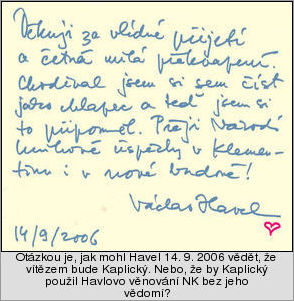 Děkuji za vlídné přijetí
a četná milá překvapení.
Chodíval jsem si sem číst
jako chlapec a teď jsem si
to připomněl. Přeji Národí
knihovně úspěchy v Klemen-
tinu i v nové budově!
Václav Havel
14/9/2006
Otázkou je, jak mohl Havel 14. 9. 2006 vědět, že
vítězem bude Kaplický. Nebo, že by Kaplický
použil Havlovo věnování NK bez jeho
vědomí?